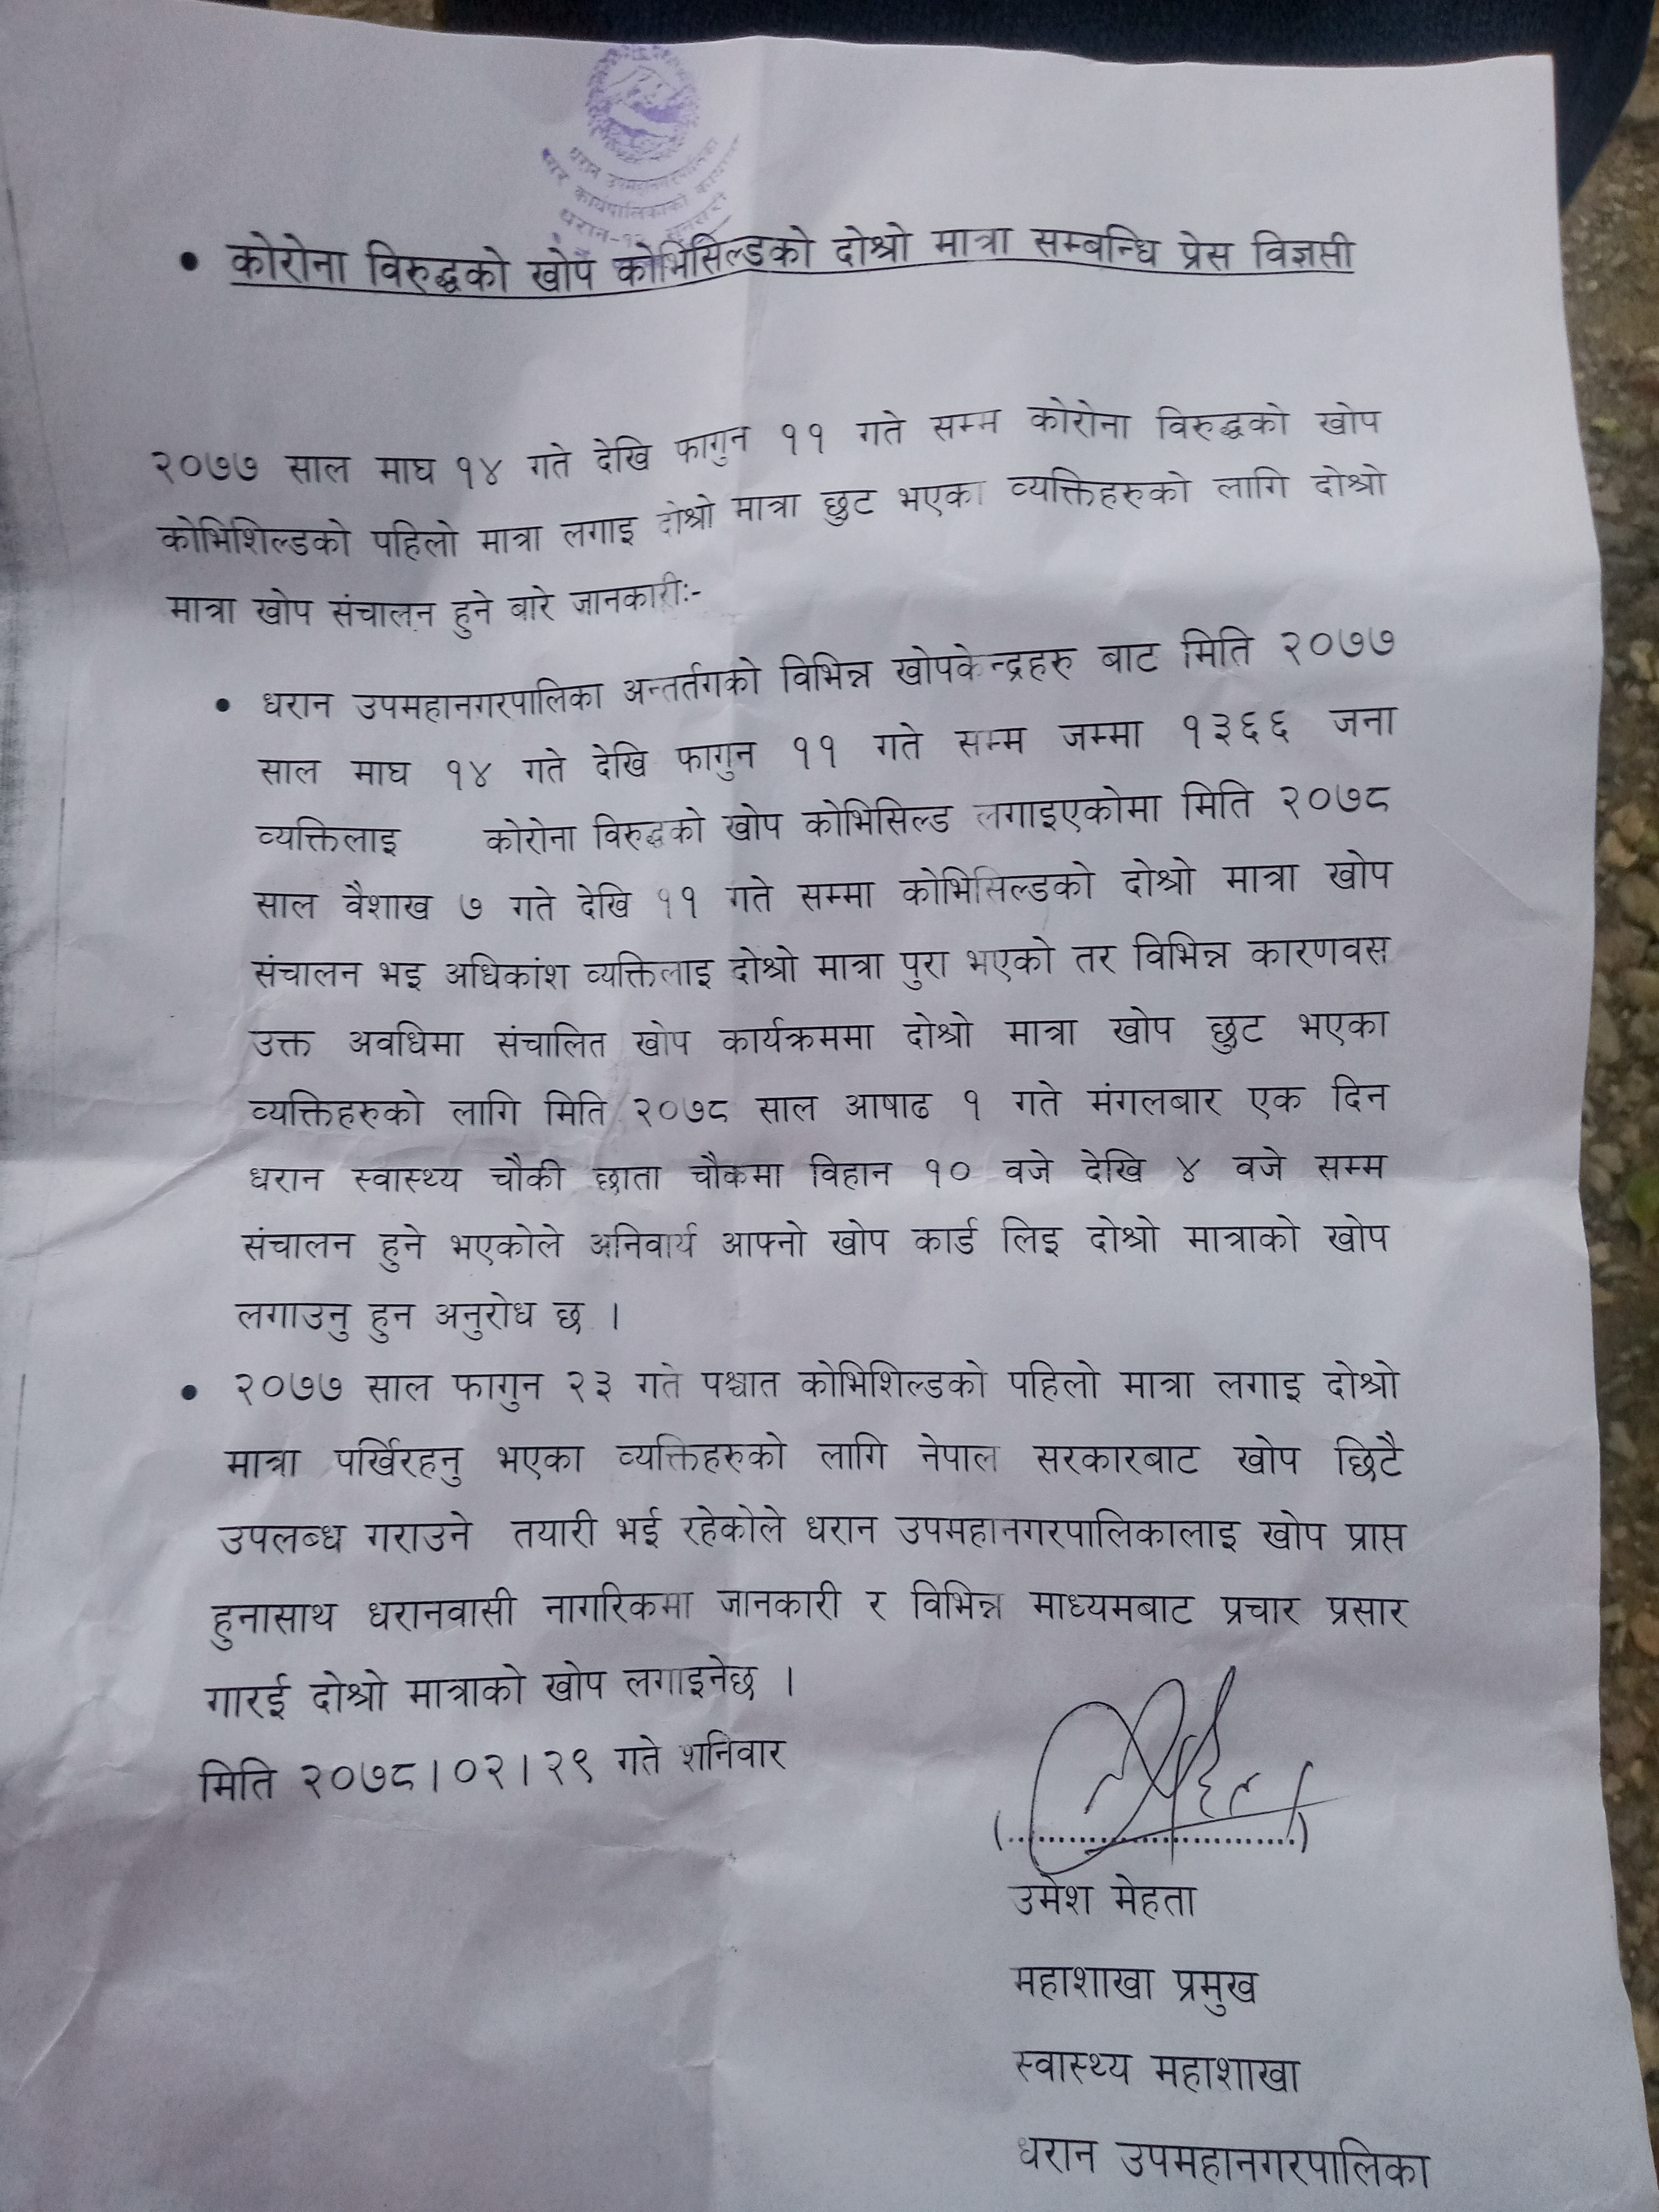 धरान उपमहानगरपालिका
नगर कार्यपालिकाको कार्यालय
धरान-१२ सुनसरी
• कोरोना विरुद्धको खोप कोभिसिल्डको दोश्रो मात्रा सम्बन्धि प्रेस विज्ञप्ती
२०७७ साल माघ १४ गते देखि फागुन ११ गते सम्म कोरोना विरुद्धको खोप
कोभिशिल्डको पहिलो मात्रा लगाइ दोश्रो मात्रा छुट भएका व्यक्तिहरुको लागि दोश्रो
मात्रा खोप संचालन हुने बारे जानकारी:-
• धरान उपमहानगरपालिका अन्तर्तगको विभिन्न खोपकेन्द्रहरु बाट मिति २०७७
साल माघ १४ गते देखि फागुन ११ गते सम्म जम्मा १३६६ जना
व्यक्तिलाइ कोरोना विरुद्धको खोप कोभिसिल्ड लगाइएकोमा मिति २०७८
साल वैशाख ७ गते देखि ११ गते सम्मा कोभिसिल्डको दोश्रो मात्रा खोप
संचालन भइ अधिकांश व्यक्तिलाइ दोश्रो मात्रा पुरा भएको तर विभिन्न कारणवस
उक्त अवधिमा संचालित खोप कार्यक्रममा दोश्रो मात्रा खोप छुट भएका
व्यक्तिहरुको लागि मिति २०७८ साल आषाढ १ गते मंगलबार एक दिन
धरान स्वास्थ्य चौकी छाता चौकमा विहान १० वजे देखि ४ वजे सम्म
संचालन हुने भएकोले अनिवार्य आफ्नो खोप कार्ड लिइ दोश्रो मात्राको खोप
लगाउनु हुन अनुरोध छ ।
• २०७७ साल फागुन २३ गते पश्चात कोभिशिल्डको पहिलो मात्रा लगाइ दोश्रो
मात्रा पर्खिरहनु भएका व्यक्तिहरुको लागि नेपाल सरकारबाट खोप छिटै
उपलब्ध गराउने तयारी भई रहेकोले धरान उपमहानगरपालिकालाइ खोप प्राप्त
हुनासाथ धरानवासी नागरिकमा जानकारी र विभिन्न माध्यमबाट प्रचार प्रसार
गारई दोश्रो मात्राको खोप लगाइनेछ ।
मिति २०७८।०२।२९ गते शनिवार
(..............................)
उमेश मेहता
महाशाखा प्रमुख
स्वास्थ्य महाशाखा
धरान उपमहानगरपालिका